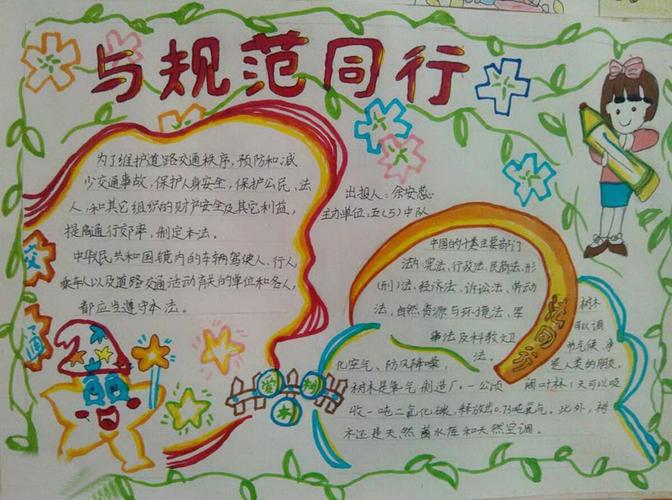 与规范同行
为了维护道路交通秩序，预防和减
少交通事故，保护人身安全，保护公民、法
人，和其它组织的财产安全及其它利益，
提高通行郊率，制定本法。
中华民共和国镜内的车辆驾使人、行人，
乘车人以及道路交通活动有关的单位和各人，
都应当遵守本法。
交
通
出报人：余安蕊
主办单位，五(5)中队
中国的十基主要部门
法：宪法、行政法、民商法、形
(刑)法、经济法、诉讼法、劳动
法、自然资源与环境法、军
事法及科教文卫
法。
法同行
爱树木
树木
可以调
节气候、净
化空气、防风降噪，是人类的朋友。
树木是氧气制造厂。一公顷阔叶林1天可以吸
收一吨二氧化碳，释放出0.73吨氧气。此外，树
木还是天然蓄水库和天然空调。